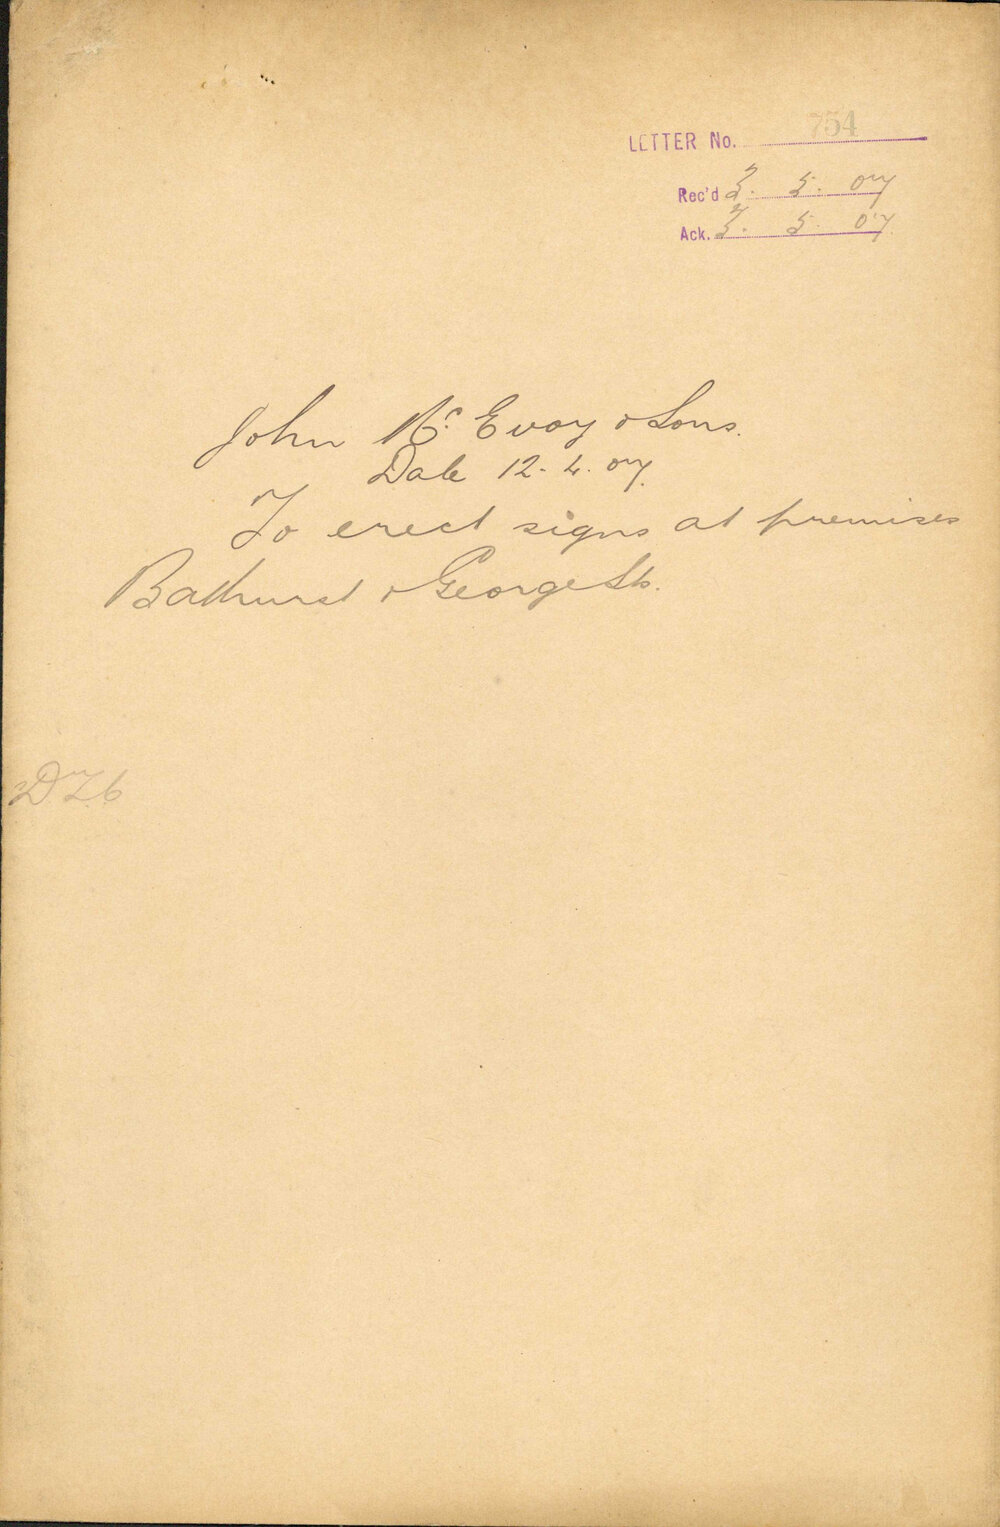 LETTER No. 754
Rec'd 7. 5. 07
Ack. 7. 5. 07
John McEvoy & Sons.
Date 12.4.07.
To erect signs at premises
Bathurst & George Sts.